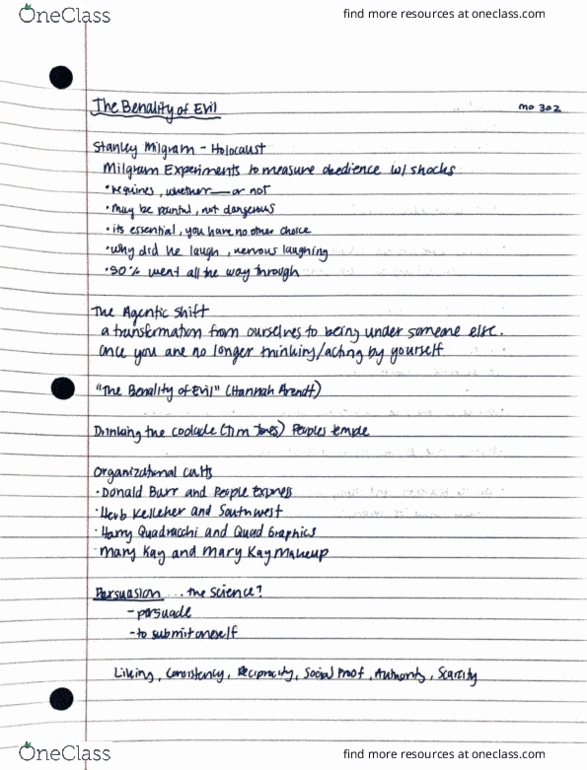 OneClass
find more resources at oneclass.com
The Benality of Evil
MO 302
Stanley Milgram - Holocaust
Milgram Experiments to measure obedience w/ shocks
• requires, whether — or not
• may be painful, not dangerous
• its essential, you have no other choice
• why did he laugh, nervous laughing
• 50% went all the way through
The Agentic Shift
a transformation from ourselves to being under someone else.
once you are no longer thinking/acting by yourself
"The Benality of Evil" (Hannah Arendt)
Drinking the coolade (Jim Jones) Peoples temple
Organizational cults
• Donald Burr and People Express
• Herb Kelleher and Southwest
• Harry Quadracchi and Quad Graphics
• Mary Kay and Mary Kay Makeup
Persuasion ... the science?
- persuade
- to submit oneself
Liking, Consistency, Reciprocity, Social Proof, Authority, Scarcity
OneClass
find more resources at oneclass.com